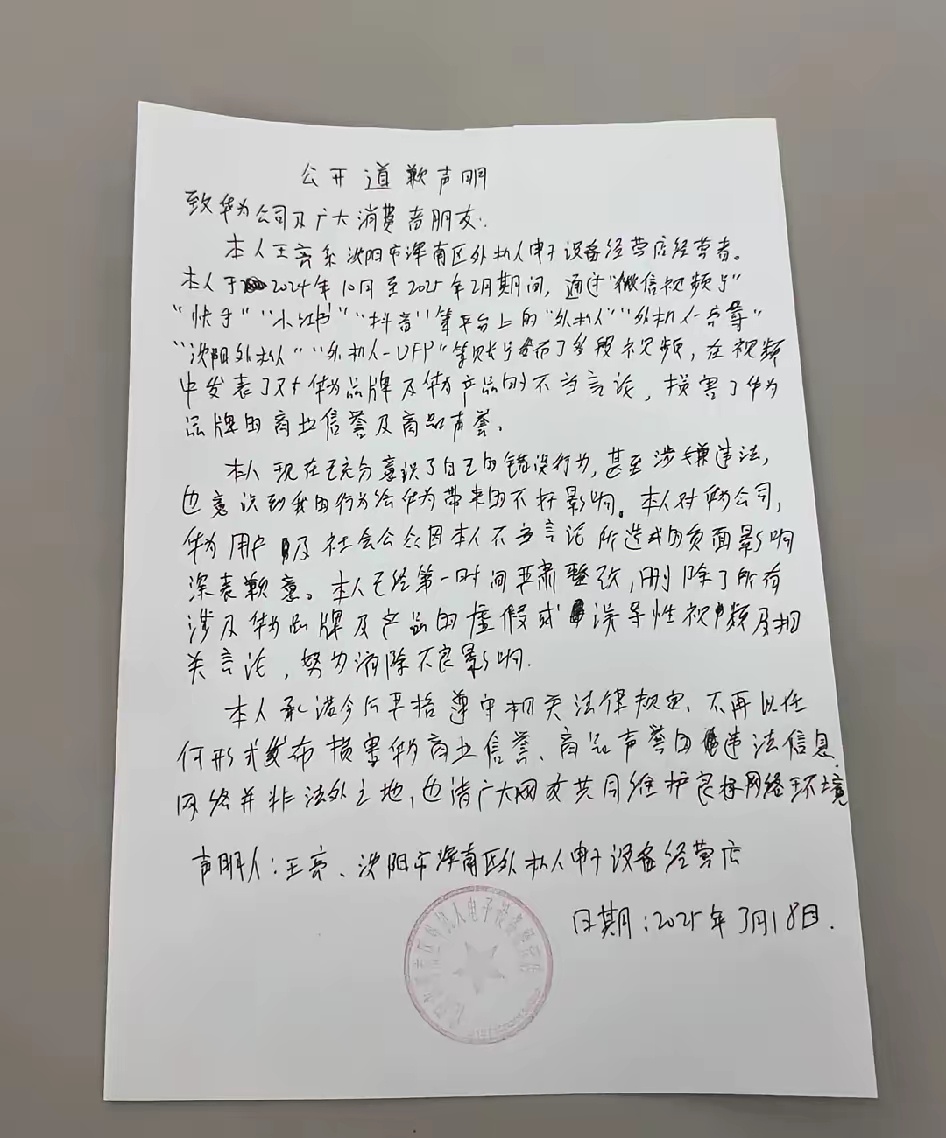 公开道歉声明
致华为公司及广大消费者朋友:
本人王亮系沈阳市浑南区外机人电子设备经营店经营者。
本人于2024年10月至2025年2月期间,通过"微信视频号"
"快手""小红书""抖音"等平台上的"外机人""外机人-亮哥"
"沈阳外机人""外机人-UFP"等账号发布了多段视频,在视频
中发表了对华为品牌及华为产品的不当言论,损害了华为
品牌的商业信誉及商品声誉。
本人现在已充分意识了自己的错误行为,甚至涉嫌违法,
也意识到我的行为给华为带来的不好影响。本人对华为公司,
华为用户及社会公众因本人不当言论所造成的负面影响
深表歉意。本人已经第一时间严肃整改,删除了所有
涉及华为品牌及产品的虚假或误导性视频及相
关言论,努力消除不良影响.
本人承诺今后严格遵守相关法律规定、不再以任
何形式发布损害华为商业信誉、商品声誉的违法信息.
网络并非法外之地,也请广大网友共同维护良好网络环境
声明人:王亮、沈阳市浑南区外机人电子设备经营店
日期:2025年3月18日.